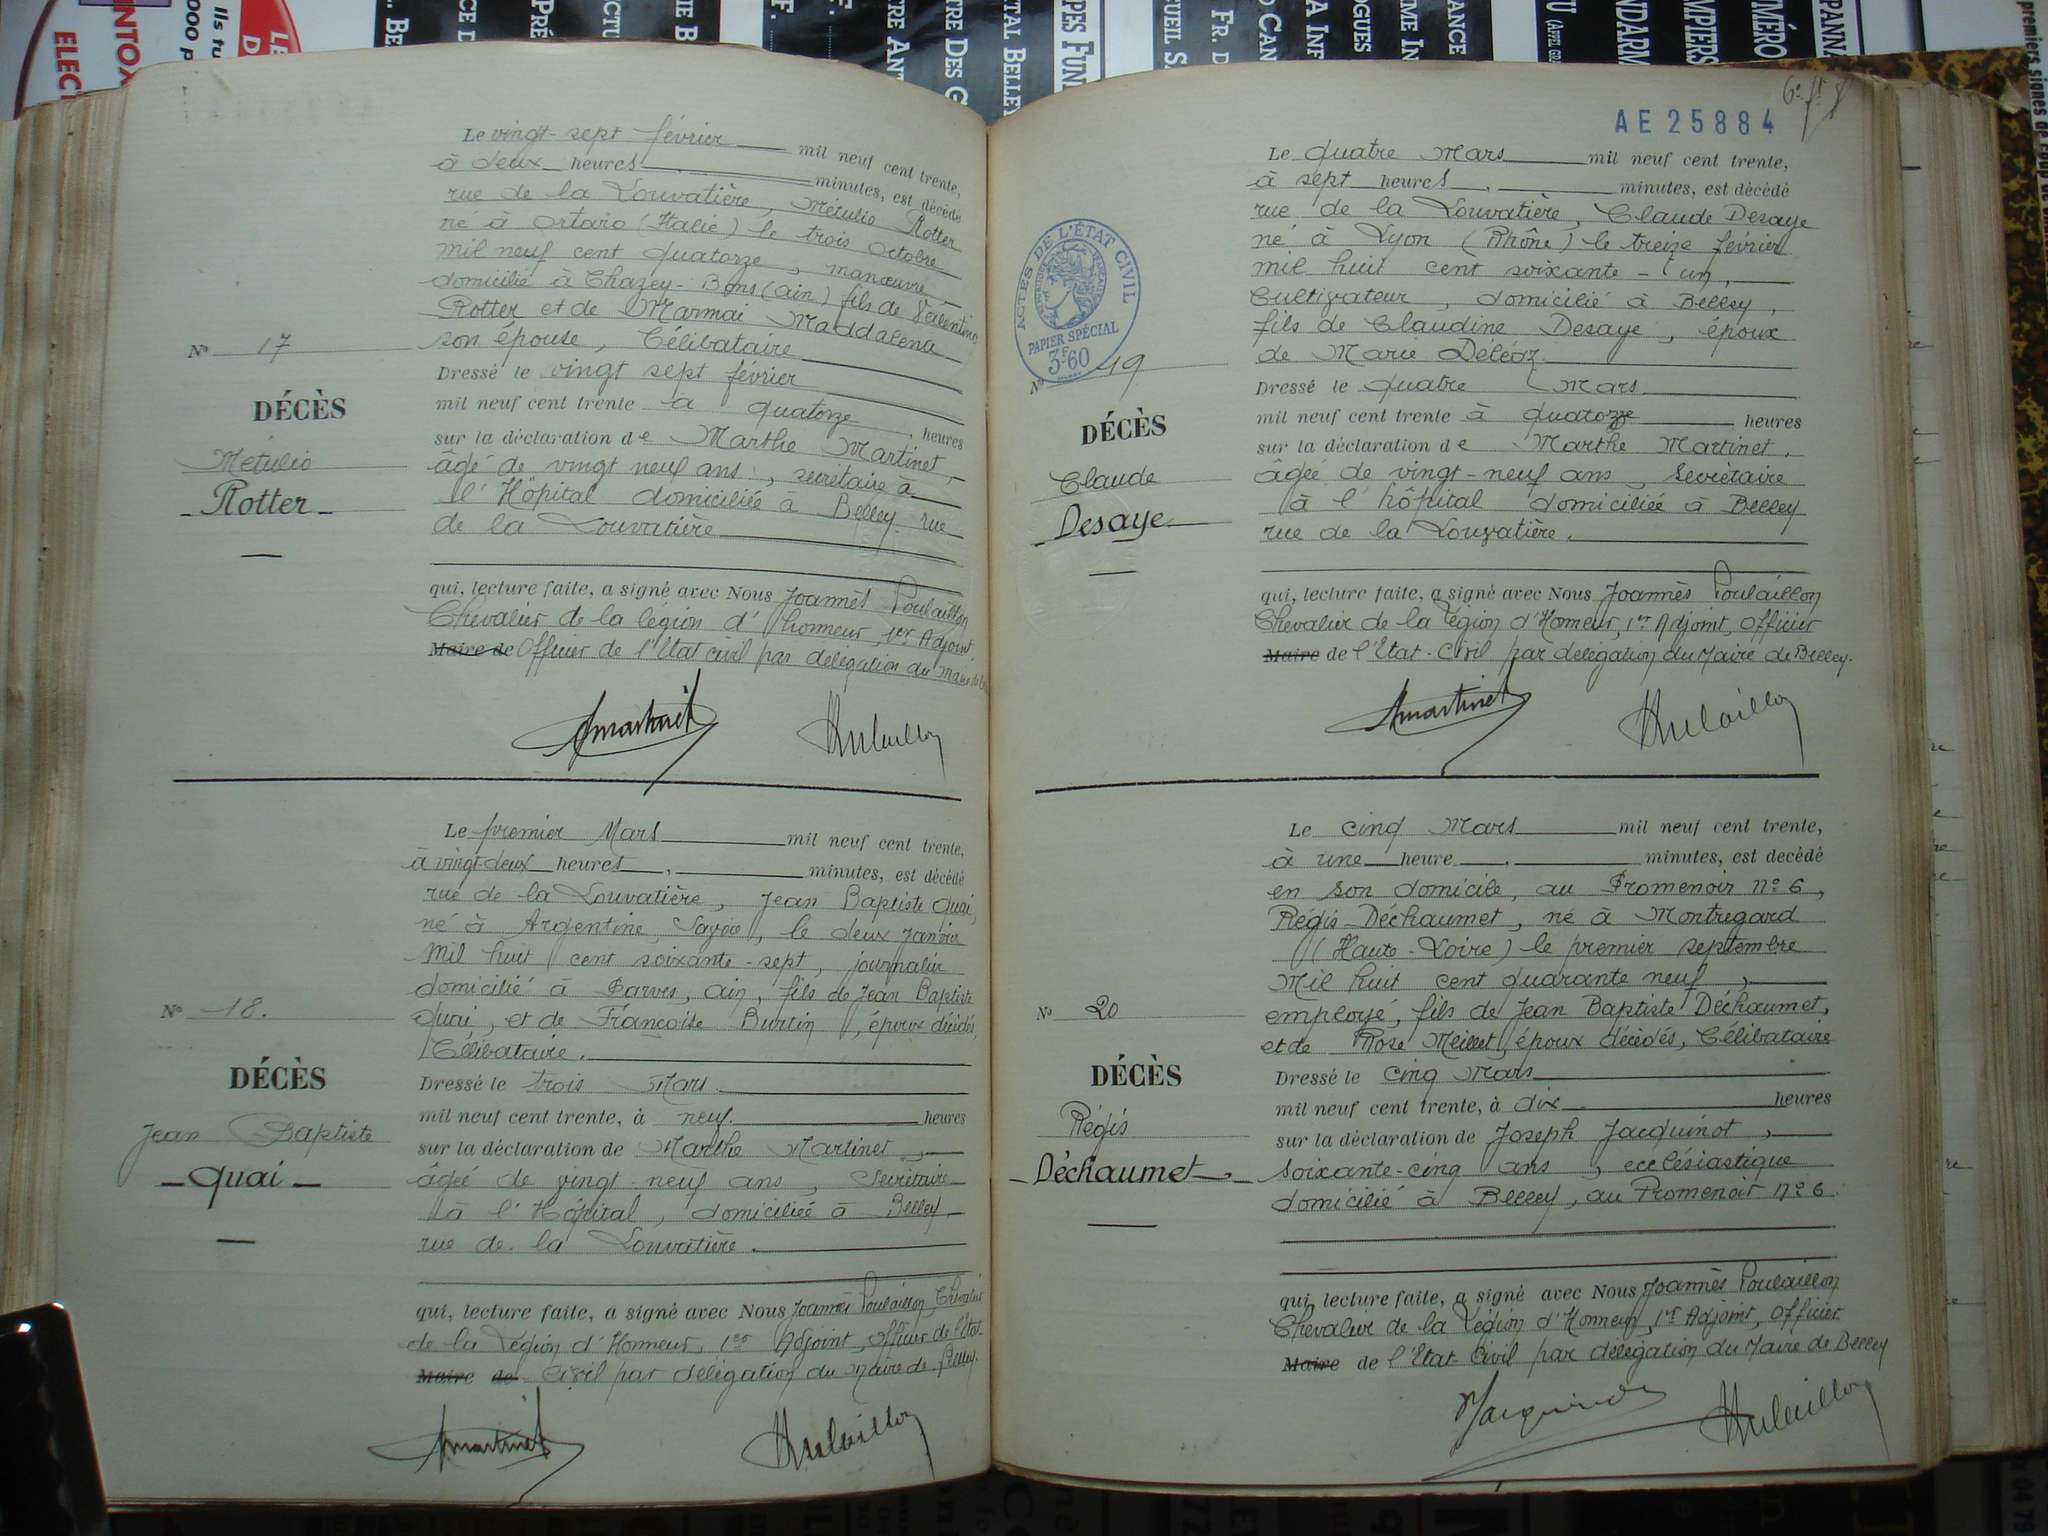 Le vingt-sept février mil neuf cent trente,
à deux heures minutes, est décédé
rue de la Louvatière, Métulio Rotter
né à Ortaro (Italie) le trois Octobre
mil neuf cent quatorze, manœuvre
domicilié à Chazey-Bons (ain) fils de Valentino
Rotter et de Marmai Maddalena
son épouse, Célibataire
Dressé le vingt sept février
mil neuf cent trente à quatorze heures
sur la déclaration de Marthe Martinet,
âgé de vingt neuf ans, secrétaire à
l'Hôpital domiciliée à Belley rue
de la Louvatière
qui, lecture faite, a signé avec Nous Joannès Poulaillon
Chevalier de la légion d'honneur, 1er Adjoint
Maire de Officier de l'Etat civil par délégation du Maire
N° 17
DÉCÈS
Métulio
Rotter
Le premier Mars mil neuf cent trente,
à vingt-deux heures minutes, est décédé
rue de la Louvatière, Jean Baptiste Quai,
né à Argentine, Savoie, le deux Janvier
Mil huit cent soixante-sept, journalier
domicilié à Parves, ain, fils de Jean Baptiste
Quai, et de Françoise Burtin, époux décédés,
Célibataire.
Dressé le trois Mars
mil neuf cent trente, à neuf. heures
sur la déclaration de Marthe Martinet,
âgée de vingt-neuf ans, Secrétaire
à l'Hôpital, domiciliée à Belley
rue de la Louvatière.
qui, lecture faite, a signé avec Nous Joannès Poulaillon, Chevalier
de la Légion d'Honneur, 1er Adjoint, officier de l'état
Maire de Civil par délégation du Maire de Belley.
N° 18.
DÉCÈS
Jean Baptiste
Quai
AE 25884
Le quatre Mars mil neuf cent trente,
à sept heures minutes, est décédé
rue de la Louvatière, Claude Desaye
né à Lyon (Rhône) le treize février
mil huit cent soixante-un,
Cultivateur, domicilié à Belley,
fils de Claudine Desaye, époux
de Marie Déléaz
Dressé le quatre Mars
mil neuf cent trente à quatorze heures
sur la déclaration de Marthe Martinet,
âgée de vingt-neuf ans, Secrétaire
à l'hôpital domiciliée à Belley
rue de la Louvatière.
qui, lecture faite, a signé avec Nous Joannès Poulaillon
Chevalier de la Légion d'Honneur, 1er Adjoint, Officier
Maire de l'Etat-Civil par délégation du Maire de Belley.
ACTES DE L'ÉTAT CIVIL
PAPIER SPÉCIAL
3F60
N° 19
DÉCÈS
Claude
Desaye
Le cinq Mars mil neuf cent trente,
à une heure minutes, est décédé
en son domicile, au Promenoir n° 6,
Régis Déchaumet, né à Montregard
(Haute-Loire) le premier septembre
Mil huit cent quarante neuf,
employé, fils de Jean Baptiste Déchaumet,
et de Rose Meillet, époux décédés, Célibataire
Dressé le cinq Mars
mil neuf cent trente, à dix heures
sur la déclaration de Joseph Jacquinot,
soixante-cinq ans, ecclésiastique
domicilié à Belley, au Promenoir n° 6
qui, lecture faite, a signé avec Nous Joannès Poulaillon
Chevalier de la Légion d'Honneur, 1er Adjoint, Officier
Maire de l'Etat-Civil par délégation du Maire de Belley
N° 20
DÉCÈS
Régis
Déchaumet